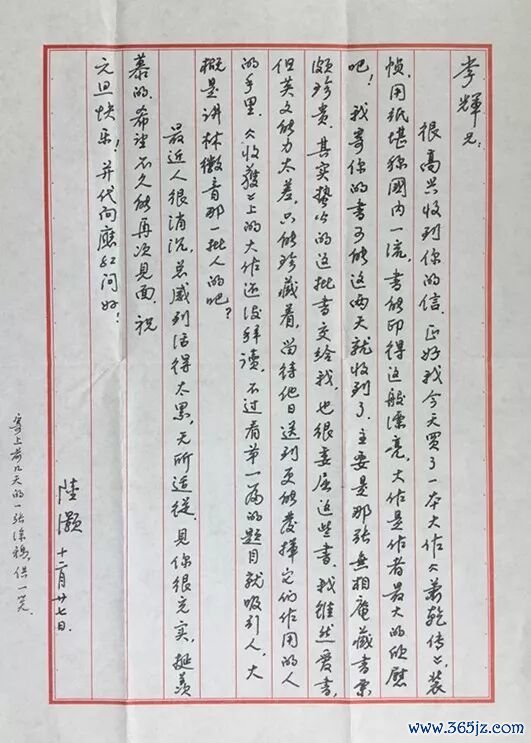 李輝兄:
很高兴收到你的信。正好我今天買了一本大作《萧乾传》,装
帧、用紙堪称國内一流,書能印得这般漂亮,大作是作者最大的欣慰
吧!我寄你的書可能这两天就收到了。主要是那張無相庵藏書票
颇珍贵。其实蛰公的这批書交给我,也很委屈这些書。我雖然爱書,
但英文能力太差,只能珍藏着,尚待他日送到更能發揮它们作用的人
的手里。《收獲》上的大作还没拜读。不过看第一篇的题目就吸引人,大
概是讲林徽音那一批人的吧?
最近人很消沉,总感到活得太累,无所适从。见你很充实,挺羡
慕的。希望不久能再次見面。祝
元旦快乐!并代向應红问好!
陸灏 十二月廿七日.
寄上前几天的一张涂鸦,供一笑.
www.365jz.com